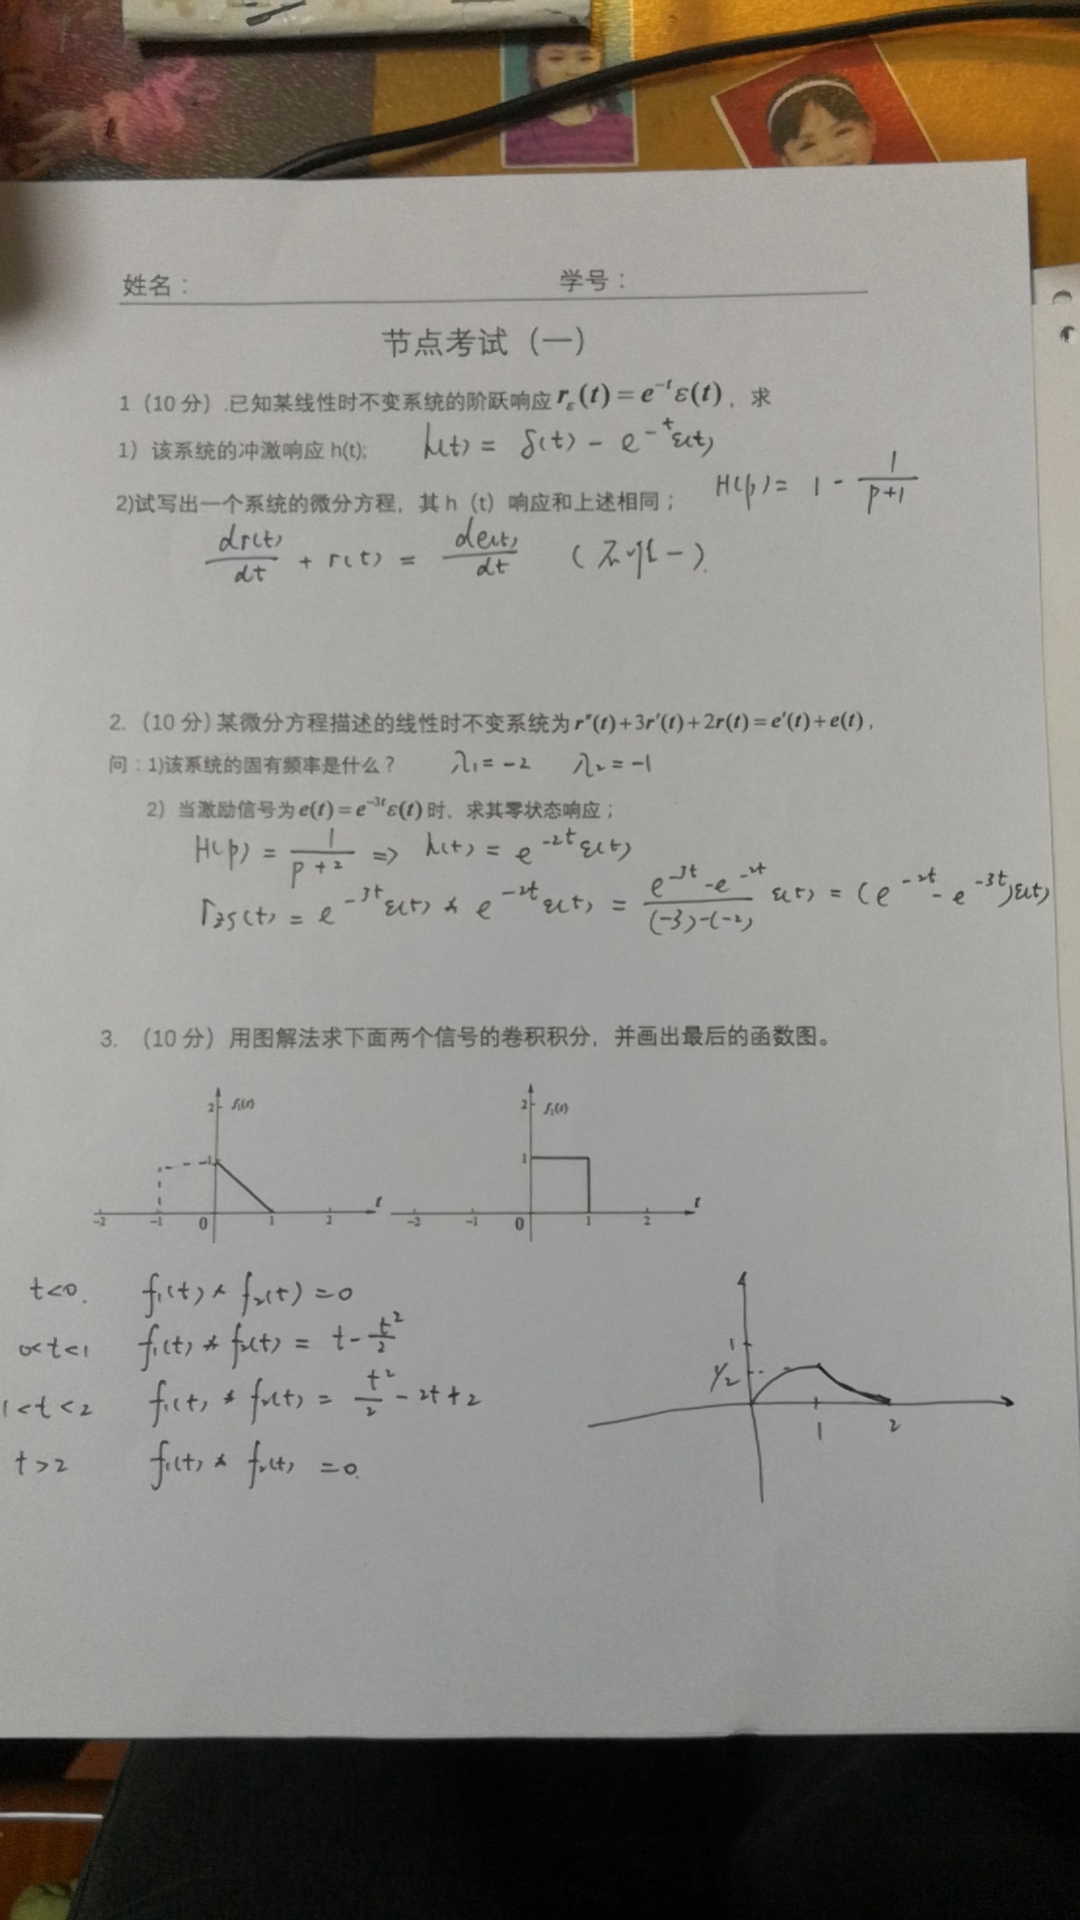 姓名：
学号：
节点考试（一）
1（10 分）.已知某线性时不变系统的阶跃响应 rε(t) = e^{-t}ε(t)，求
1）该系统的冲激响应 h(t); h(t) = δ(t) - e^{-t}ε(t)
2)试写出一个系统的微分方程，其 h（t）响应和上述相同； H(p) = 1 - 1/(p+1)
dr(t)/dt + r(t) = de(t)/dt （不唯一）.
2.（10 分）某微分方程描述的线性时不变系统为 r″(t)+3r′(t)+2r(t)=e′(t)+e(t)，
问：1)该系统的固有频率是什么？ λ₁=-2 λ₂=-1
2）当激励信号为 e(t)=e^{-3t}ε(t) 时，求其零状态响应；
H(p) = 1/(p+2) => h(t) = e^{-2t}ε(t)
rzs(t) = e^{-3t}ε(t) * e^{-2t}ε(t) = (e^{-3t}-e^{-2t})/((-3)-(-2)) ε(t) = (e^{-2t} - e^{-3t})ε(t)
3.（10 分）用图解法求下面两个信号的卷积积分，并画出最后的函数图。
2 f₁(t)
1
-2 -1 0 1 2 t
2 f₂(t)
1
-2 -1 0 1 2 t
t<0. f₁(t) * f₂(t) = 0
0<t<1 f₁(t) * f₂(t) = t - t²/2
1<t<2 f₁(t) * f₂(t) = t²/2 - 2t + 2
t>2 f₁(t) * f₂(t) = 0.
1
1/2
1 2